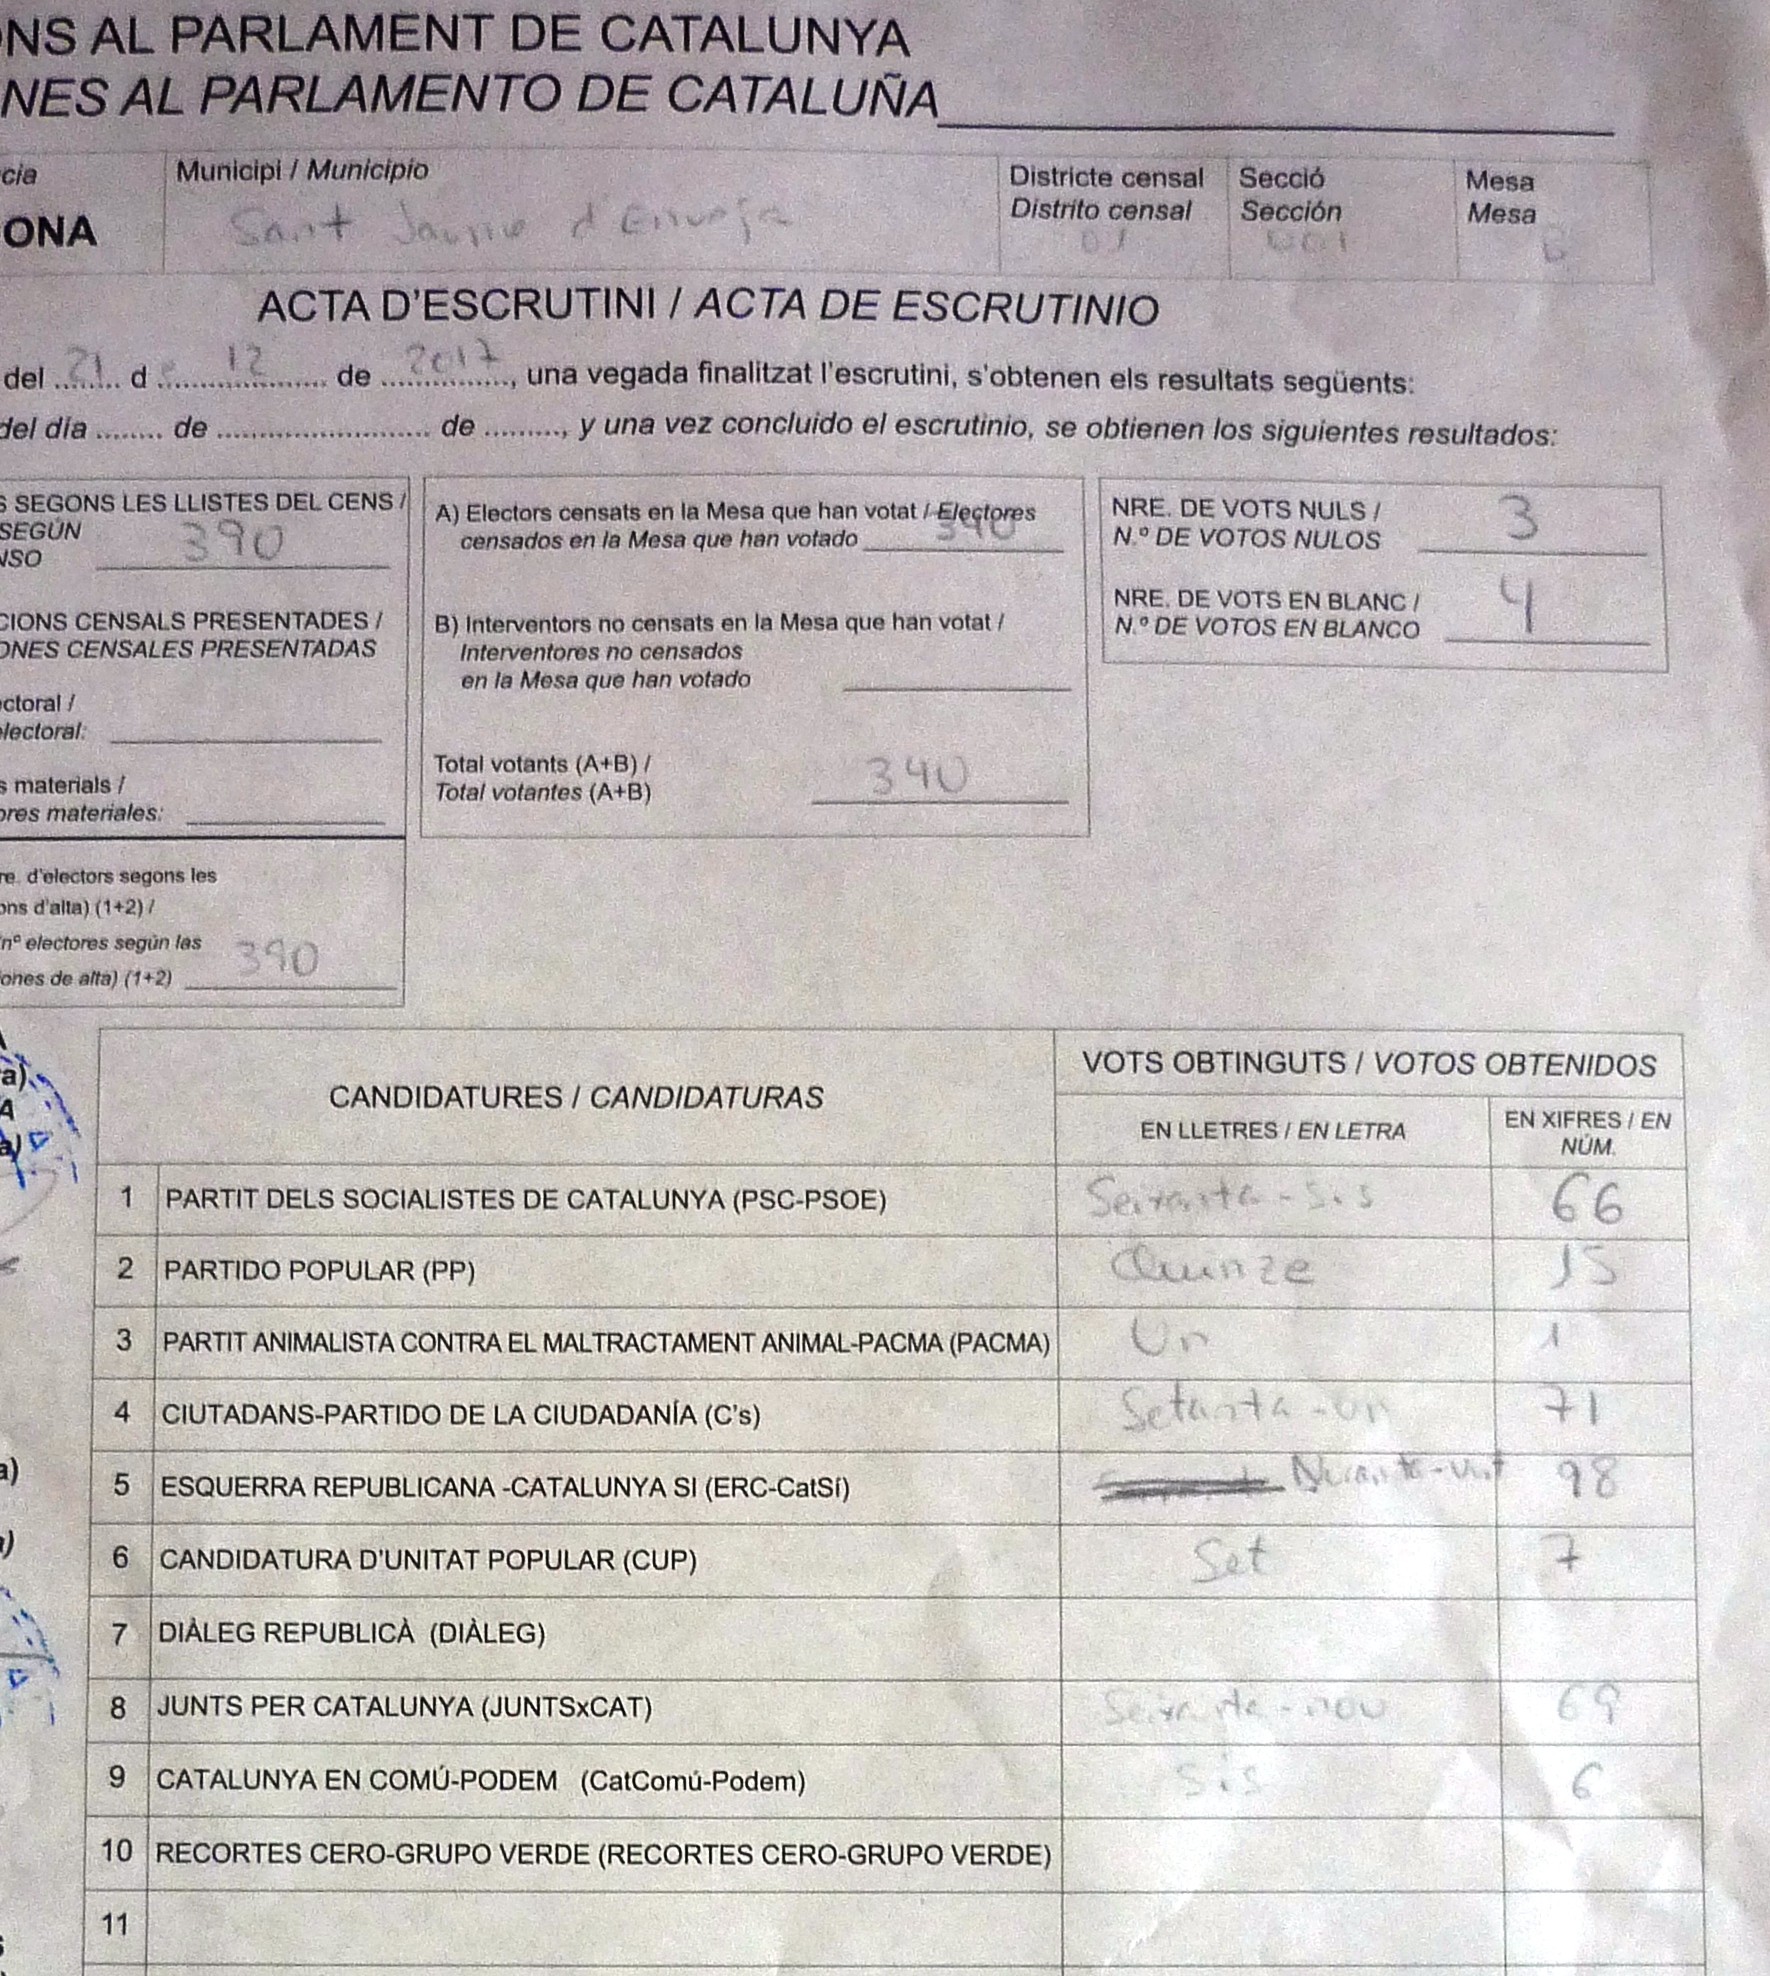 NS AL PARLAMENT DE CATALUNYA
NES AL PARLAMENTO DE CATALUÑA
cia
ONA
Municipi / Municipio
Sant Jaume d'Enveja
Districte censal
Distrito censal
01
Secció
Sección
001
Mesa
Mesa
B
ACTA D'ESCRUTINI / ACTA DE ESCRUTINIO
del 21 d e 12 de 2017, una vegada finalitzat l'escrutini, s'obtenen els resultats següents:
del día ........ de ........................ de ........., y una vez concluido el escrutinio, se obtienen los siguientes resultados:
S SEGONS LES LLISTES DEL CENS /
SEGÚN
NSO 390
CIONS CENSALS PRESENTADES /
ONES CENSALES PRESENTADAS
ectoral /
electoral:
s materials /
ores materiales:
re. d'electors segons les
ons d'alta) (1+2) /
nº electores según las
iones de alta) (1+2) 390
A) Electors censats en la Mesa que han votat / Electores
censados en la Mesa que han votado 340
B) Interventors no censats en la Mesa que han votat /
Interventores no censados
en la Mesa que han votado
Total votants (A+B) /
Total votantes (A+B) 340
NRE. DE VOTS NULS /
N.º DE VOTOS NULOS 3
NRE. DE VOTS EN BLANC /
N.º DE VOTOS EN BLANCO 4
CANDIDATURES / CANDIDATURAS
VOTS OBTINGUTS / VOTOS OBTENIDOS
EN LLETRES / EN LETRA
EN XIFRES / EN
NÚM.
1 PARTIT DELS SOCIALISTES DE CATALUNYA (PSC-PSOE) Seixanta-sis 66
2 PARTIDO POPULAR (PP) Quinze 15
3 PARTIT ANIMALISTA CONTRA EL MALTRACTAMENT ANIMAL-PACMA (PACMA) Un 1
4 CIUTADANS-PARTIDO DE LA CIUDADANÍA (C's) Setanta-un 71
5 ESQUERRA REPUBLICANA -CATALUNYA SI (ERC-CatSí) Noranta-vuit 98
6 CANDIDATURA D'UNITAT POPULAR (CUP) Set 7
7 DIÀLEG REPUBLICÀ (DIÀLEG)
8 JUNTS PER CATALUNYA (JUNTSxCAT) Seixanta-nou 69
9 CATALUNYA EN COMÚ-PODEM (CatComú-Podem) Sis 6
10 RECORTES CERO-GRUPO VERDE (RECORTES CERO-GRUPO VERDE)
11